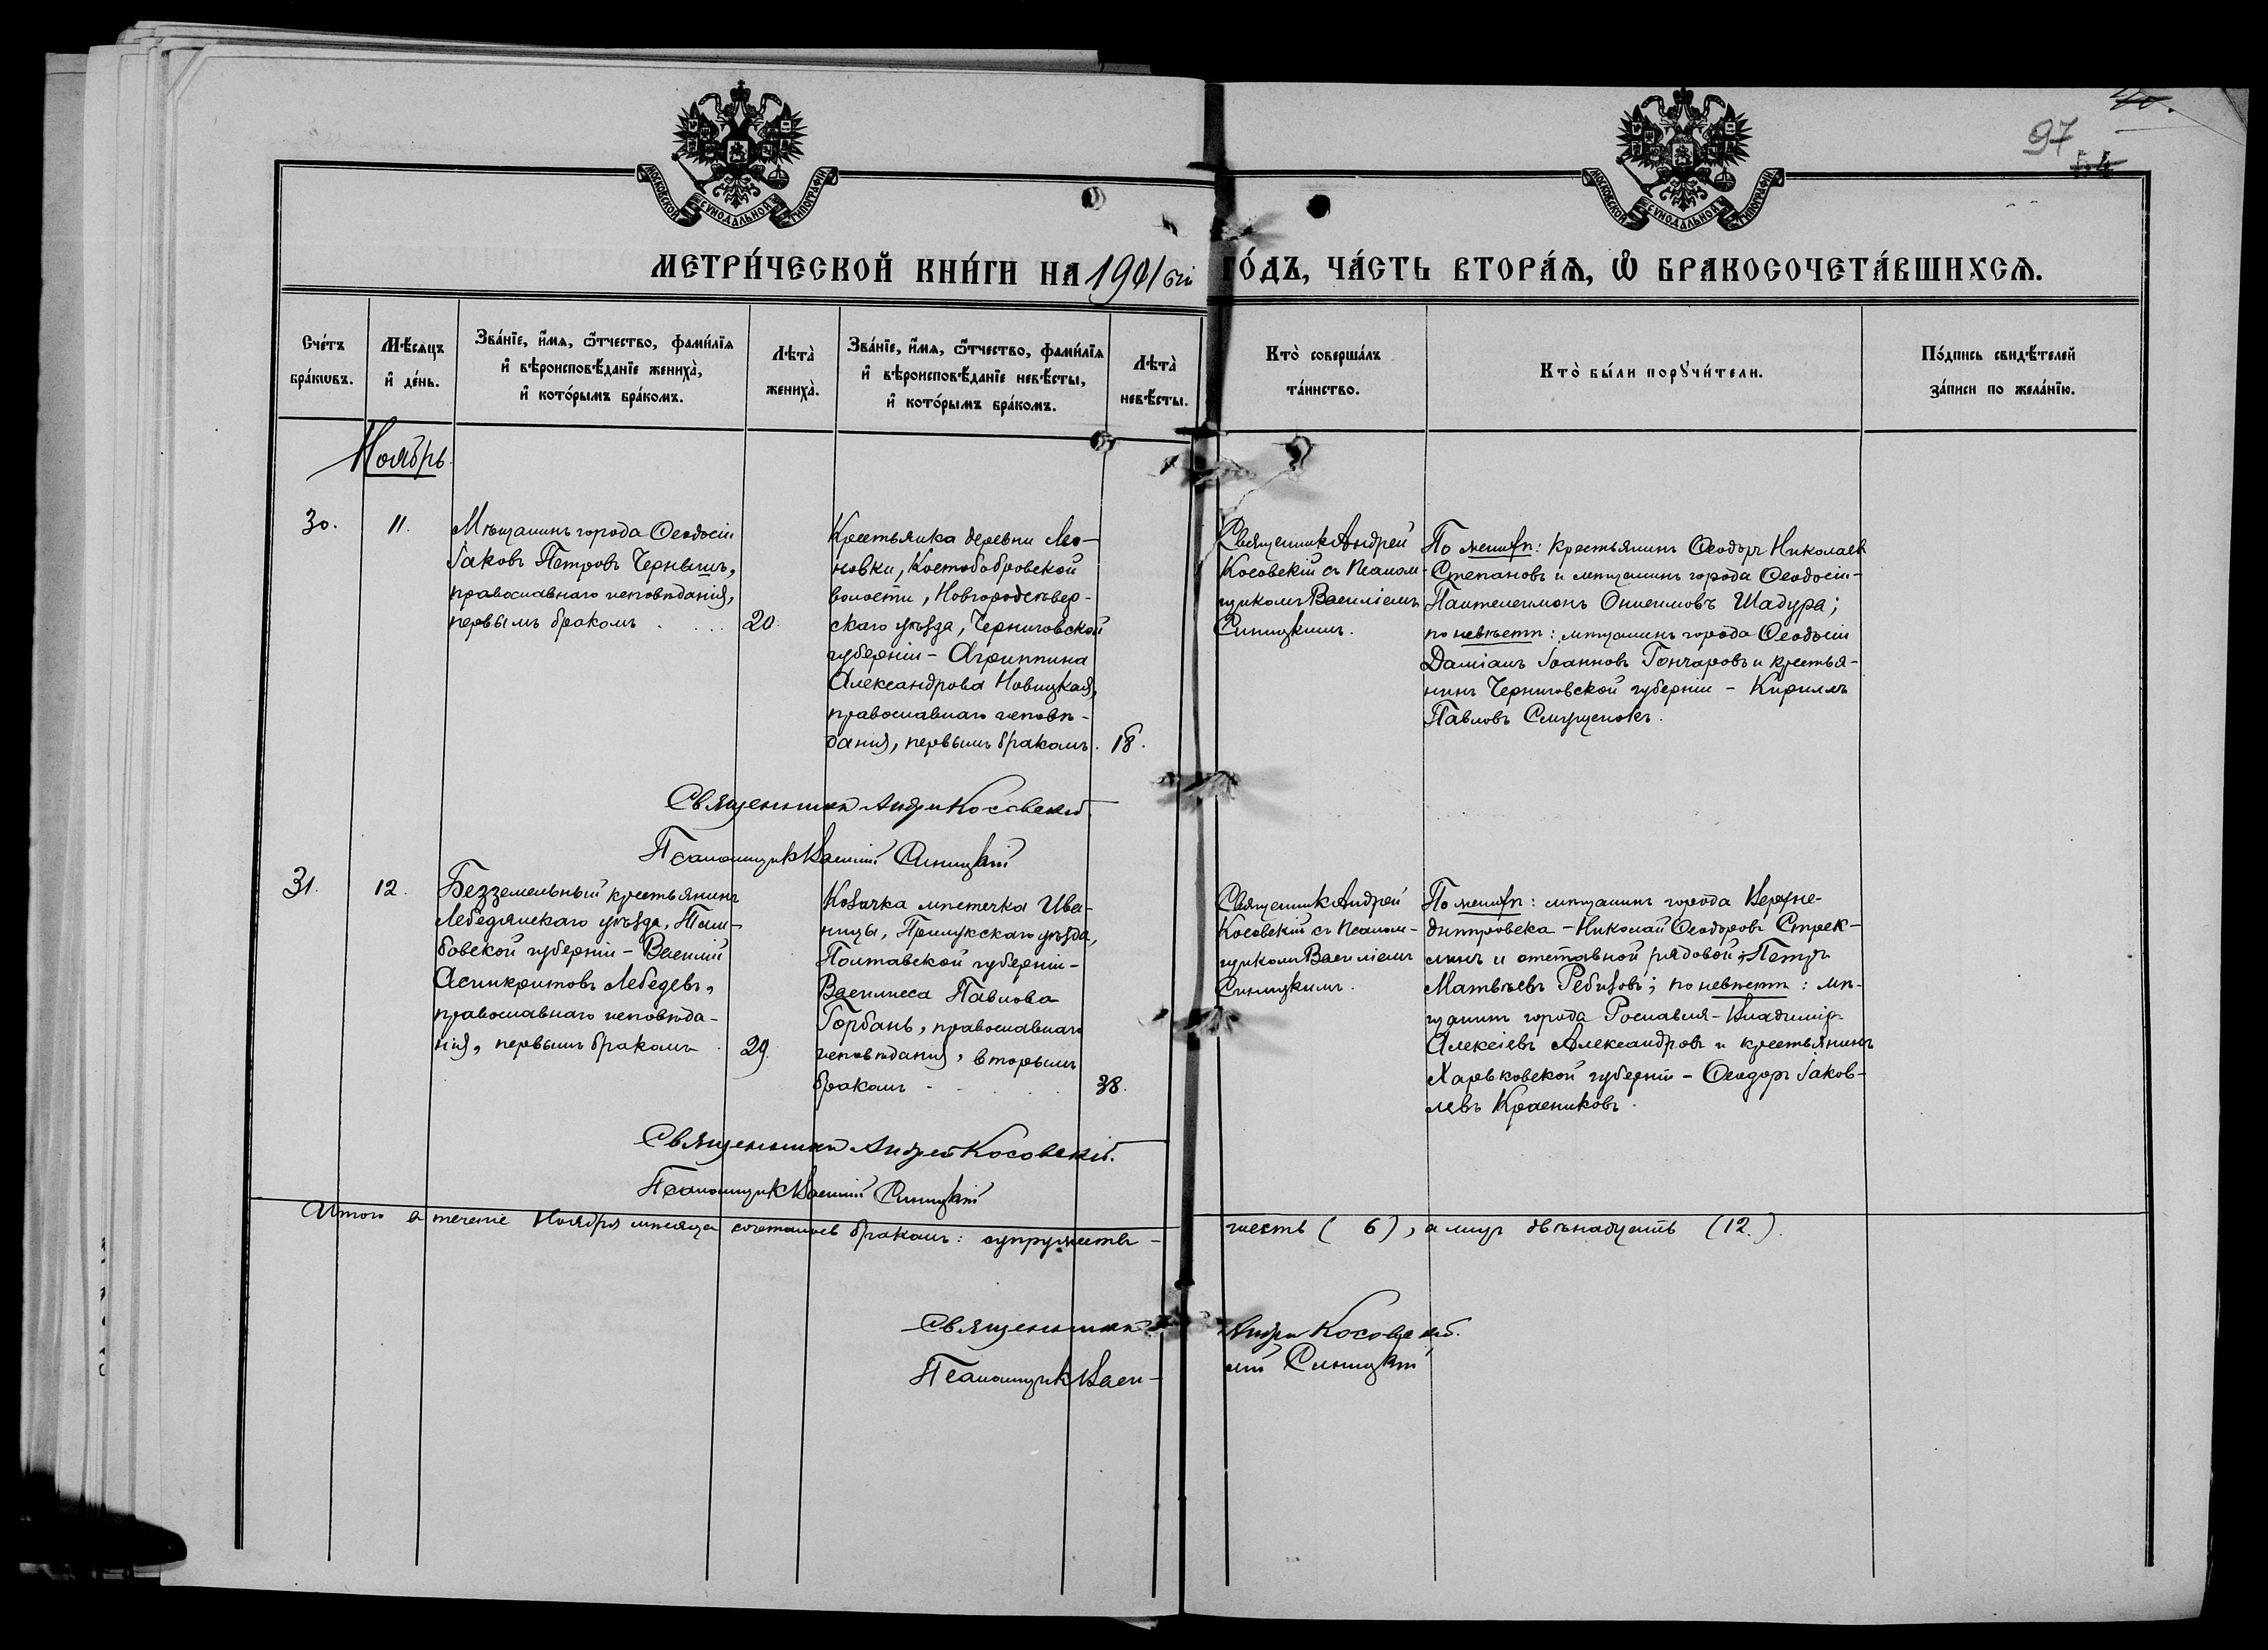 97
МОСКОВСКОЙ СѴНОДАЛЬНОЙ ТИПОГРАФІИ
МОСКОВСКОЙ СѴНОДАЛЬНОЙ ТИПОГРАФІИ
МЕТРИ́ЧЕСКОЙ КНИ́ГИ НА 1901 ый ГО́ДЪ, ЧА́СТЬ ВТОРА́Ѧ, Ѽ БРАКОСОЧЕТА́ВШИХСѦ.
Сче́тъ
бра́кѡвъ.
Мѣ́сѧцъ
и҆ де́нь.
Зва́нїе, и҆́мѧ, ѻ҆́тчество, фами́лїѧ
и҆ вѣроисповѣ́данїе жениха̀,
и҆ кото́рымъ бра́комъ.
Лѣта̀
жениха̀.
Зва́нїе, и҆́мѧ, ѻ҆́тчество, фами́лїѧ
и҆ вѣроисповѣ́данїе невѣ́сты,
и҆ кото́рымъ бра́комъ.
Лѣта̀
невѣ́сты.
Кто̀ соверша́лъ
та́инство.
Кто̀ бы́ли порꙋчи́тели.
По́дпись свидѣ́телей
за́писи по жела́нїю.
Ноябрь
30.
11.
Мѣщанинъ города Ѳеодосіи
Іаковъ Петровъ Чернышъ,
православнаго исповѣданія,
первымъ бракомъ
20.
Крестьянка деревни Лео-
новки, Костобобровской
волости, Новгородсѣвер-
скаго уѣзда, Черниговской
губерніи - Агриппина
Александрова Новицкая,
православнаго исповѣ-
данія, первымъ бракомъ.
18.
Священник Андрей
Косовскій съ псалом-
щикомъ Василіемъ
Синицкимъ.
По женихѣ: крестьянинъ Ѳеодоръ Николаевъ
Степановъ и мѣщанинъ города Ѳеодосіи-
Пантелеимонъ Онисимовъ Шадура;
по невѣстѣ: мѣщанинъ города Ѳеодосіи
Даміанъ Іоанновъ Гончаровъ и крестья-
нинъ Черниговской губерніи - Кириллъ
Павловъ Смущенокъ.
Священникъ Андрей Косовскій.
Псаломщикъ Василій Синицкій
31.
12.
Безземельный крестьянинъ
Лебедянскаго уѣзда, Там-
бовской губерніи - Василій
Асинкритовъ Лебедевъ,
православнаго исповѣда-
нія, первымъ бракомъ
29.
Козачка мѣстечка Ива-
ницы, Прилукскаго уѣзда,
Полтавской губерніи-
Василисса Павлова
Горбань, православнаго
исповѣданія, вторымъ
бракомъ
38.
Священник Андрей
Косовскій съ псалом-
щикомъ Василіемъ
Синицкимъ.
По женихѣ: мѣщанинъ города Верхне-
днѣпровска - Николай Ѳеодоровъ Стрек-
линъ и отставной рядовой Петръ
Матвѣевъ Ребизовъ; по невѣстѣ: мѣ-
щанинъ города Рославля - Владиміръ
Алексіевъ Александровъ и крестьянинъ
Харьковской губерніи - Ѳеодоръ Іаков-
левъ Красниковъ.
Священникъ Андрей Косовскій.
Псаломщикъ Василій Синицкій
Итого въ теченіе Ноября мѣсяца сочеталось бракомъ: супружествъ - шесть (6), а лицъ двѣнадцать (12).
Священникъ Андрей Косовскій.
Псаломщикъ Васи- лій Синицкій